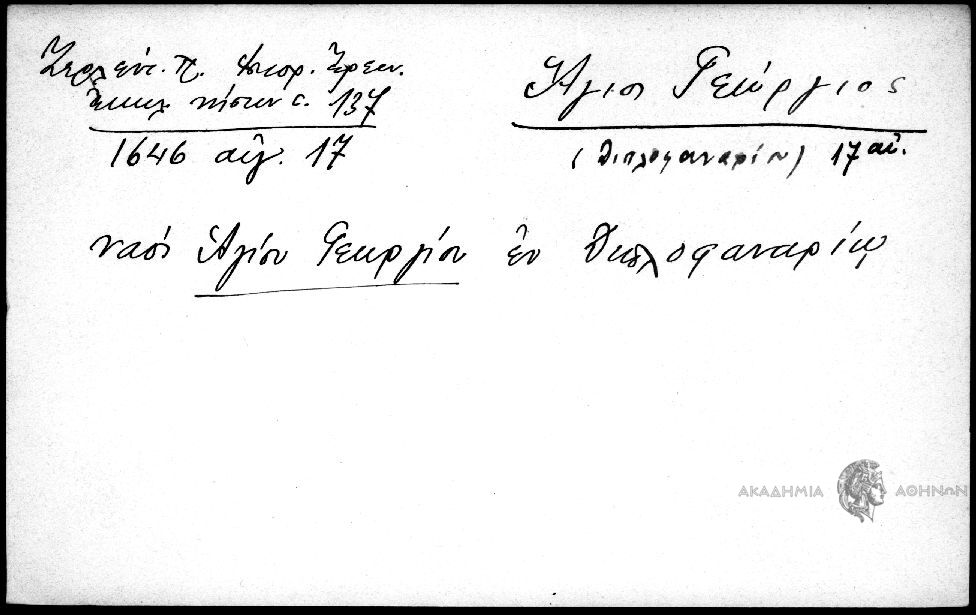 Ζερλέντ. Π. Ἱστορ. Ἔρευν.
Ἐκκλ. νήσων σ. 137
1646 αὐγ. 17
Ἅγιος Γεώργιος
(Διπλοφαναρίου) 17 αἰ.
ναός Ἁγίου Γεωργίου ἐν Διπλοφαναρίῳ
ΑΚΑΔΗΜΙΑ ΑΘΗΝΩΝ